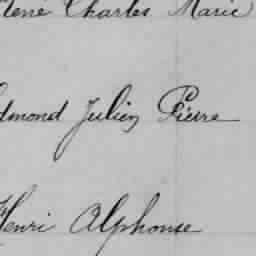 René Charles Marie
Edmond Julien Pierre
Henri Alphonse